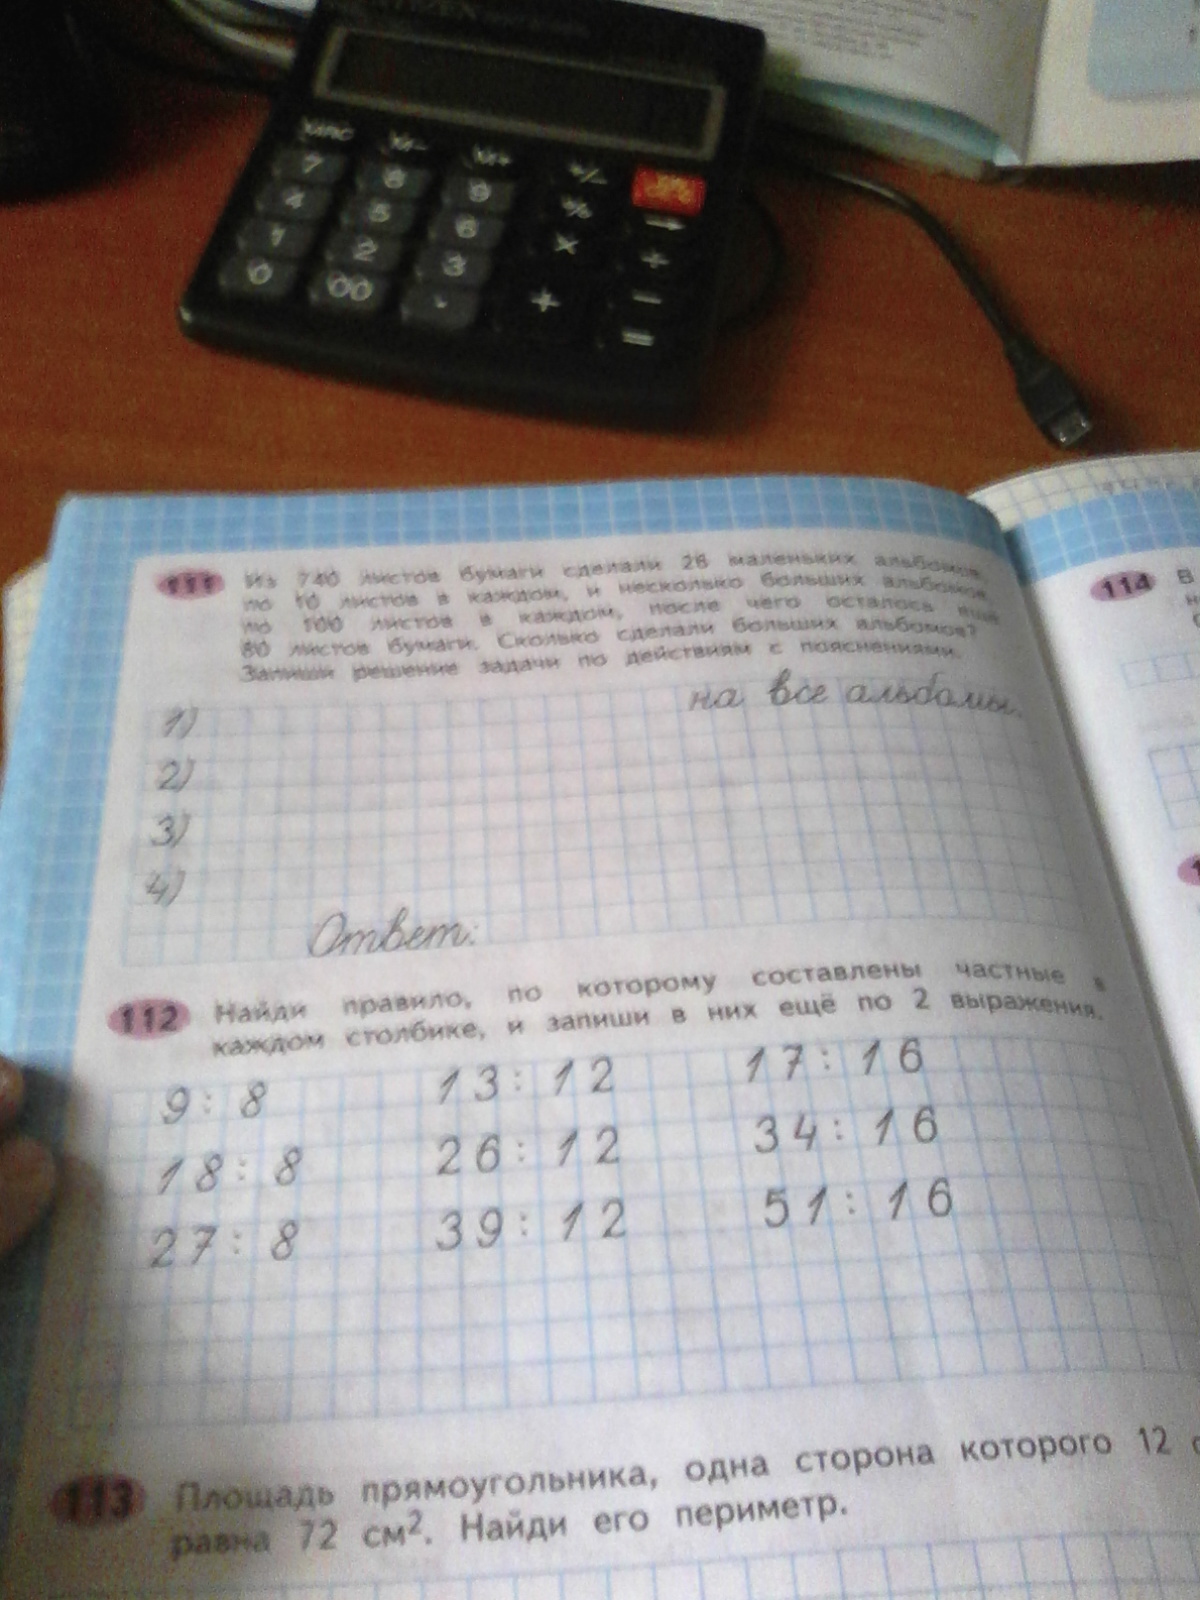 MRC M- M+ +/-
7 8 9 %
4 5 6 × ÷
1 2 3 −
0 00 . + =
111 Из 740 листов бумаги сделали 26 маленьких альбомов,
по 10 листов в каждом, и несколько больших альбомов
по 100 листов в каждом, после чего осталось ещё
80 листов бумаги. Сколько сделали больших альбомов?
Запиши решение задачи по действиям с пояснениями.
1) на все альбомы.
2)
3)
4)
Ответ:
112 Найди правило, по которому составлены частные в
каждом столбике, и запиши в них ещё по 2 выражения.
9 : 8 13 : 12 17 : 16
18 : 8 26 : 12 34 : 16
27 : 8 39 : 12 51 : 16
113 Площадь прямоугольника, одна сторона которого 12
равна 72 см². Найди его периметр.
114 В